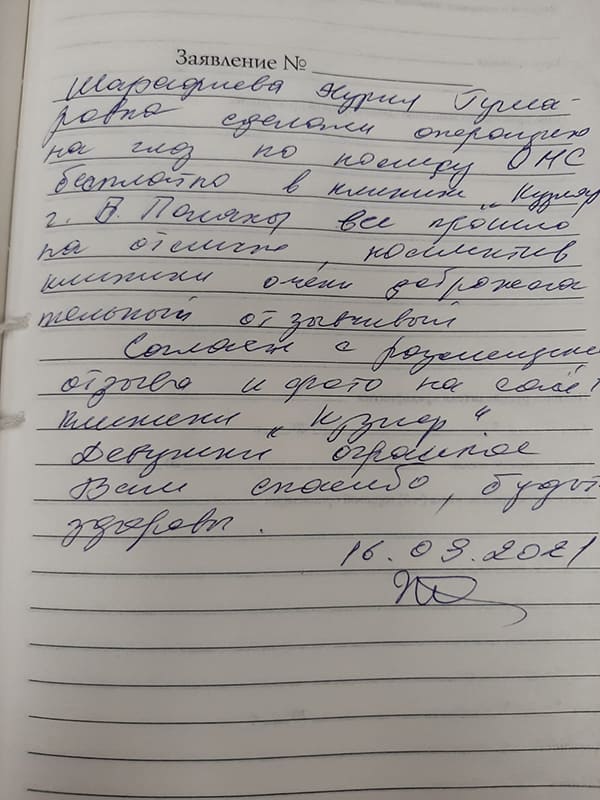 Заявление №
Шарафиева Нурия Гума-
ровна сделали операцию
на глаз по полису ОМС
бесплатно в клинике „Кузляр
г. В. Поляны все прошло
на отлично, коллектив
клиники очень доброжела
тельный отзывчивый
Согласен с размещение
отзыва и фото на сайт
клиники „Кузляр“
Девушки огромное
Вам спасибо, будьт
здоровы.
16.03.2021